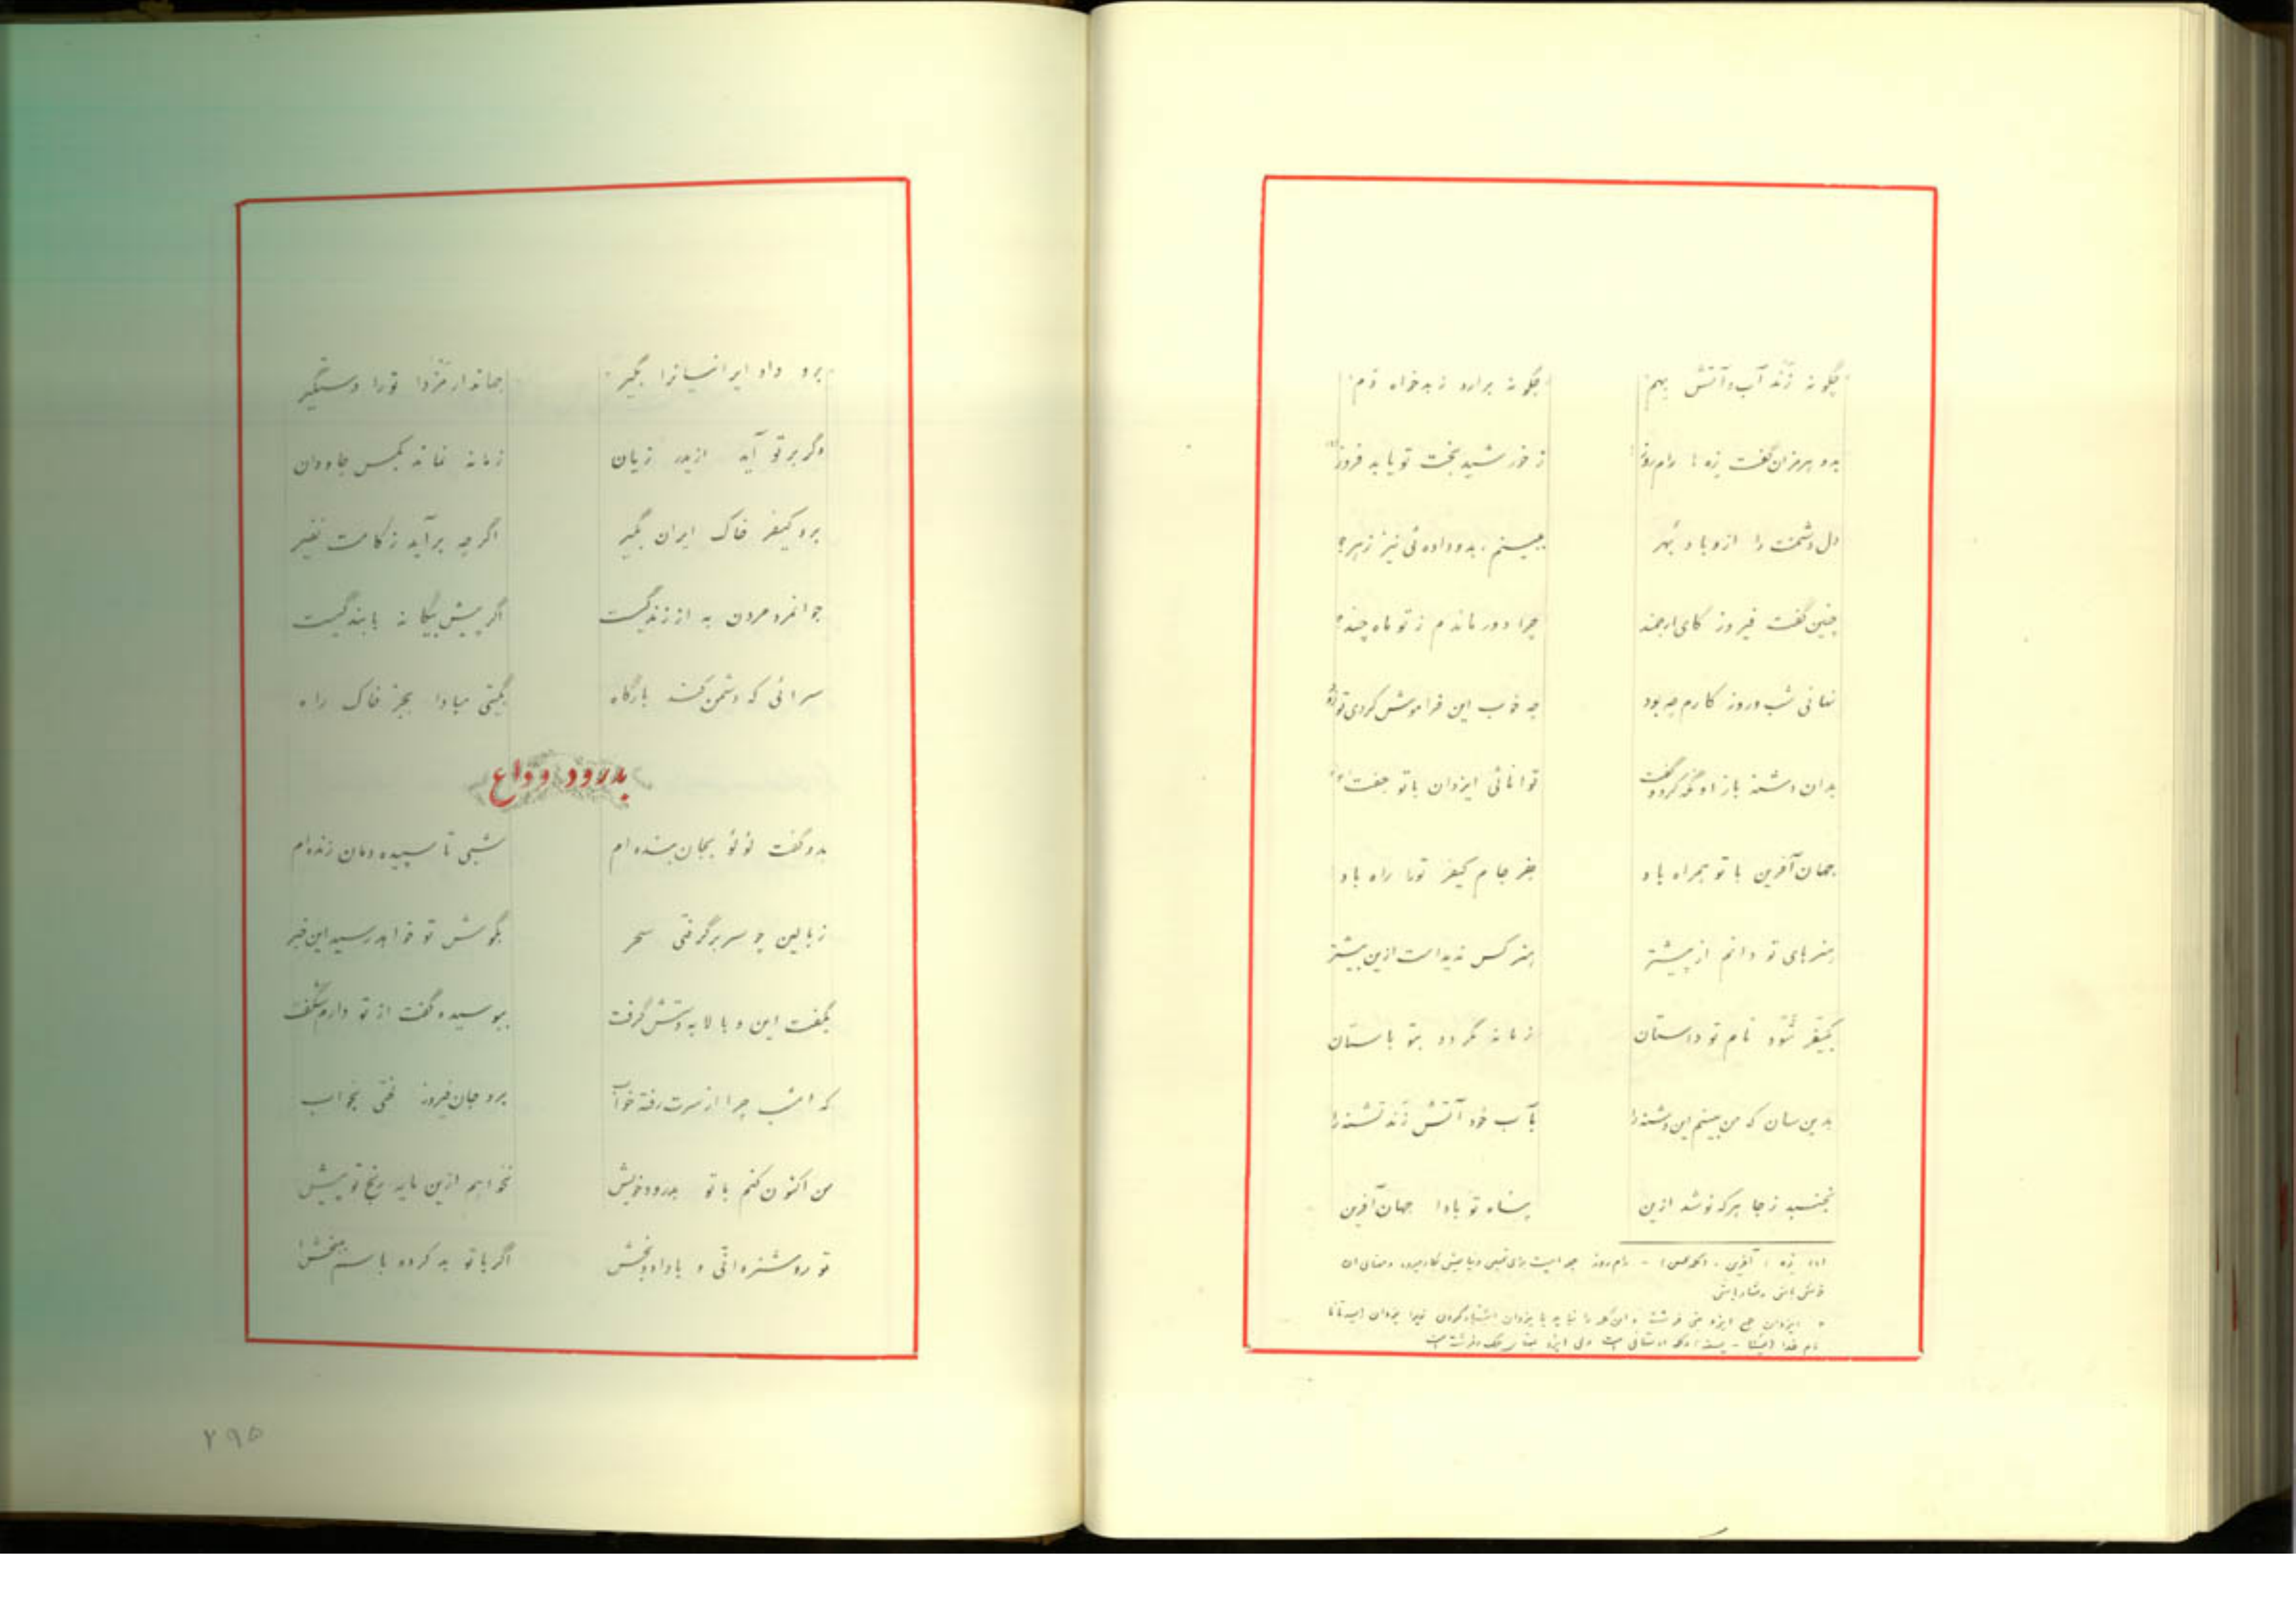 چگونه زند آب و آتش بهم چگونه برآرد ز بدخواه دم
بدو هرمزان گفت زه رامروز ز خورشید بخت تو یابد فروز
دل دشمنت را ازو باد بهر ببینم، بدو داده‌ئی نیز زهر؟
چنین گفت فیروز کای ارجمند چرا دور ماندم ز تو ماه چند؟
نهانی شب و روز کارم چه بود چه خوب این فراموش کردی تو زود
بدان دشنه باز او نگه کرد و گفت توانائی ایزدان با تو جفت
جهان آفرین با تو همراه باد جام کیفر تو را راه باد
هنرهای تو دانم از پیشتر هنر کس ندیدست ازین بیشتر
بکیفر شود نام تو داستان زمانه نگردد بتو باستان
بدین سان که من بینم این دشنه را بآب خود آتش زند تشنه را
نجنبد ز جا هر که نوشد ازین پناه تو بادا جهان آفرین
(۱) زه : آفرین - رامروز
خوش باش
ایزدان جمع ایزد فرشته یزدان
نام خدا ولی ایزد
برو داد ایرانیانرا بگیر جهاندار مزدا تورا دستگیر
وگر بر تو آید ازیدر زیان زمانه نماند بکس جاودان
برو کیفر خاک ایران بگیر اگر چه برآید ز کامت نفیر
جوانمرد مردن به از زندگیست اگر پیش بیگانه با بندگیست
سرائی که دشمن کند بارگاه بگیتی مبادا بجز خاک راه
بدرود وداع
بدو گفت لؤلؤ بجان بنده‌ام شبی تا سپیده دمان زنده‌ام
ز بالین چو سر برگرفتی سحر بگوش تو خواهد رسید این خبر
بگفت این و با لابه دستش گرفت ببوسید و گفت از تو دارم شگفت
که امشب چرا از سرت رفته خواب برو جان فیروز لختی بخواب
من اکنون کنم با تو بدرود خویش نخواهم ازین مایه رنج تو بیش
تو روشنروانی و با داد و بخش اگر با تو بد کرده باشم ببخش
۲۹۵